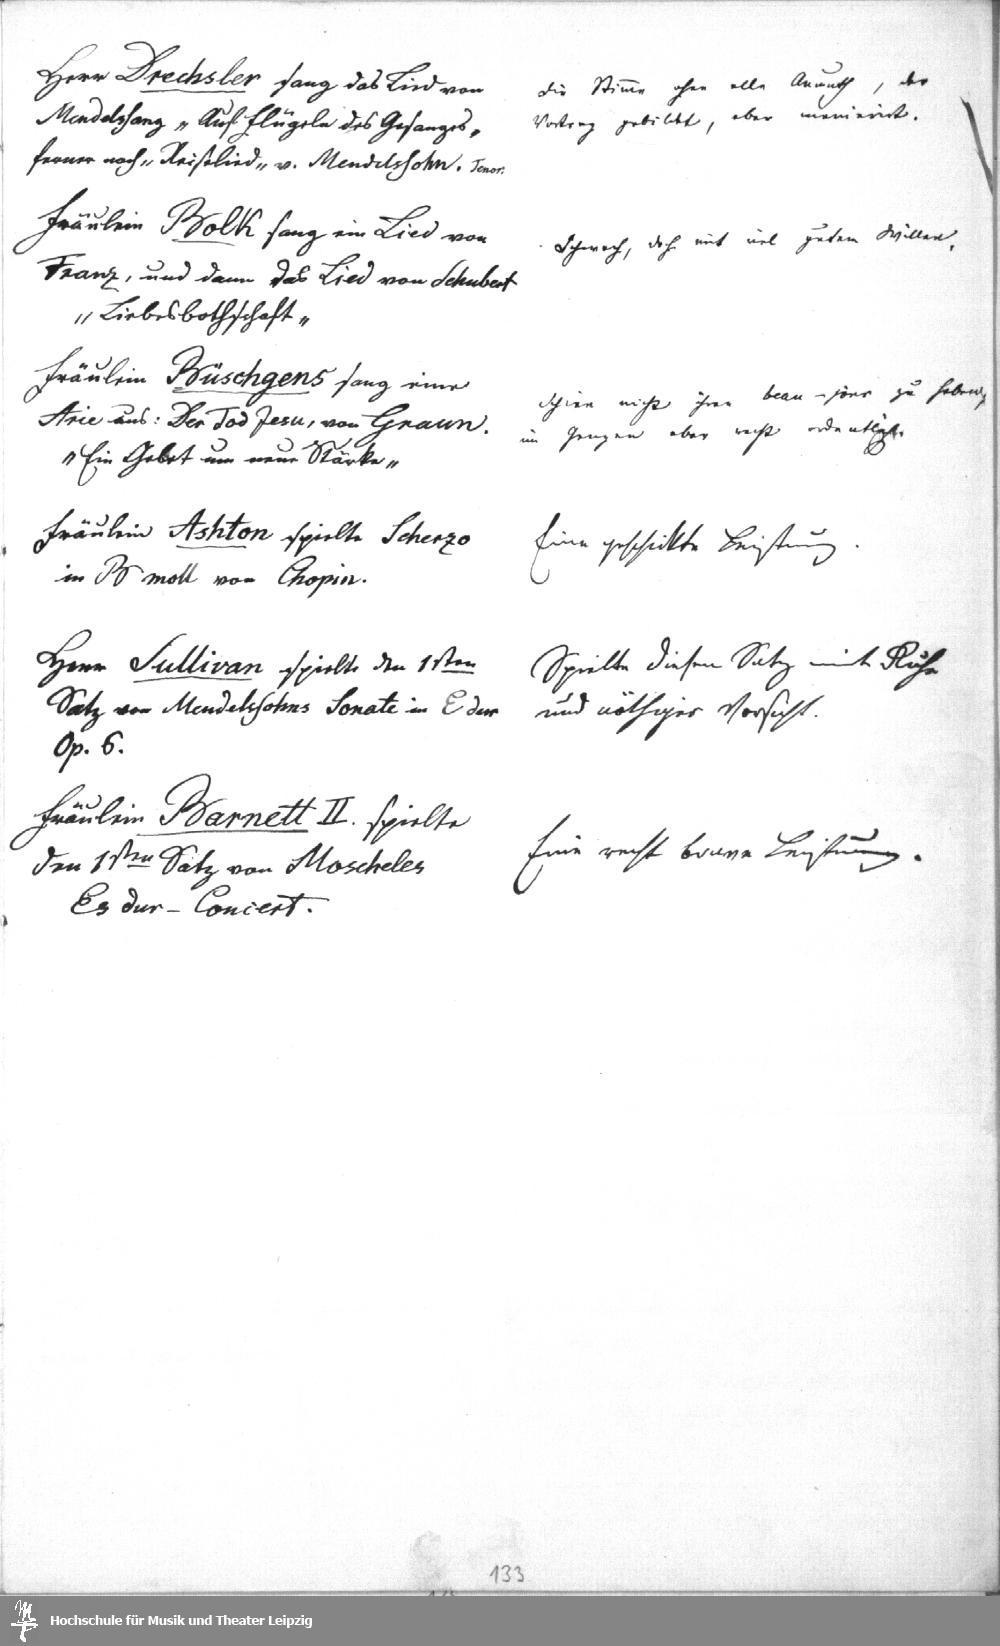 Herr Drechsler sang das Lied von
Mendelssang „Auf Flügeln des Gesanges„
ferner noch „Reiselied„ v. Mendelssohn. Tenor.
die Stimme ohne alle Anmuth, der
Vortrag gebildet, aber manierirt.
Fräulein Bolk sang ein Lied von
Franz, und dann das Lied von Schubert
„Liebesbothschaft„
Schwach, doch mit viel gutem Willen.
Fräulein Büschgens sang eine
Arie aus: Der Tod Jesu, von Graun.
„Ein Gebet um neue Stärke„
Schien nicht ihren beau-jour zu haben,
im Ganzen aber recht ordentlich.
Fräulein Ashton spielte Scherzo
in B moll von Chopin.
Eine geschickte Leistung.
Herr Sullivan spielte den 1sten
Satz von Mendelssohns Sonate in E dur
Op. 6.
Spielte diesen Satz mit Ruhe
und nöthiger Vorsicht.
Fräulein Barnett II. spielte
den 1sten Satz von Moscheles
Es dur-Concert.
Eine recht brave Leistung.
133
Hochschule für Musik und Theater Leipzig